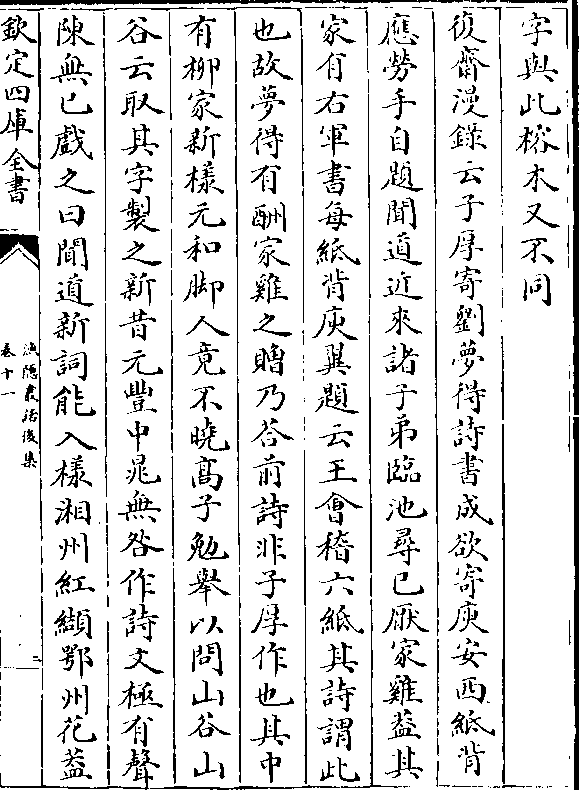 字與此㮤木又不同
復齋漫錄云子厚寄劉夢得詩書成欲寄庾安西紙背
應勞手自題聞道近來諸子弟臨池尋已厭家雞蓋其
家有右軍書每紙背庾翼題云王會稽六紙其詩謂此
也故夢得有酬家雞之贈乃答前詩非子厚作也其中
有柳家新樣元和脚人竟不曉髙子勉舉以問山谷山
谷云取其字製之新昔元豐中晁無咎作詩文極有聲
陳無已戲之曰聞道新詞能入樣湘州紅纈鄂州花蓋
欽定四庫全書
漁隱叢話後集
卷十一